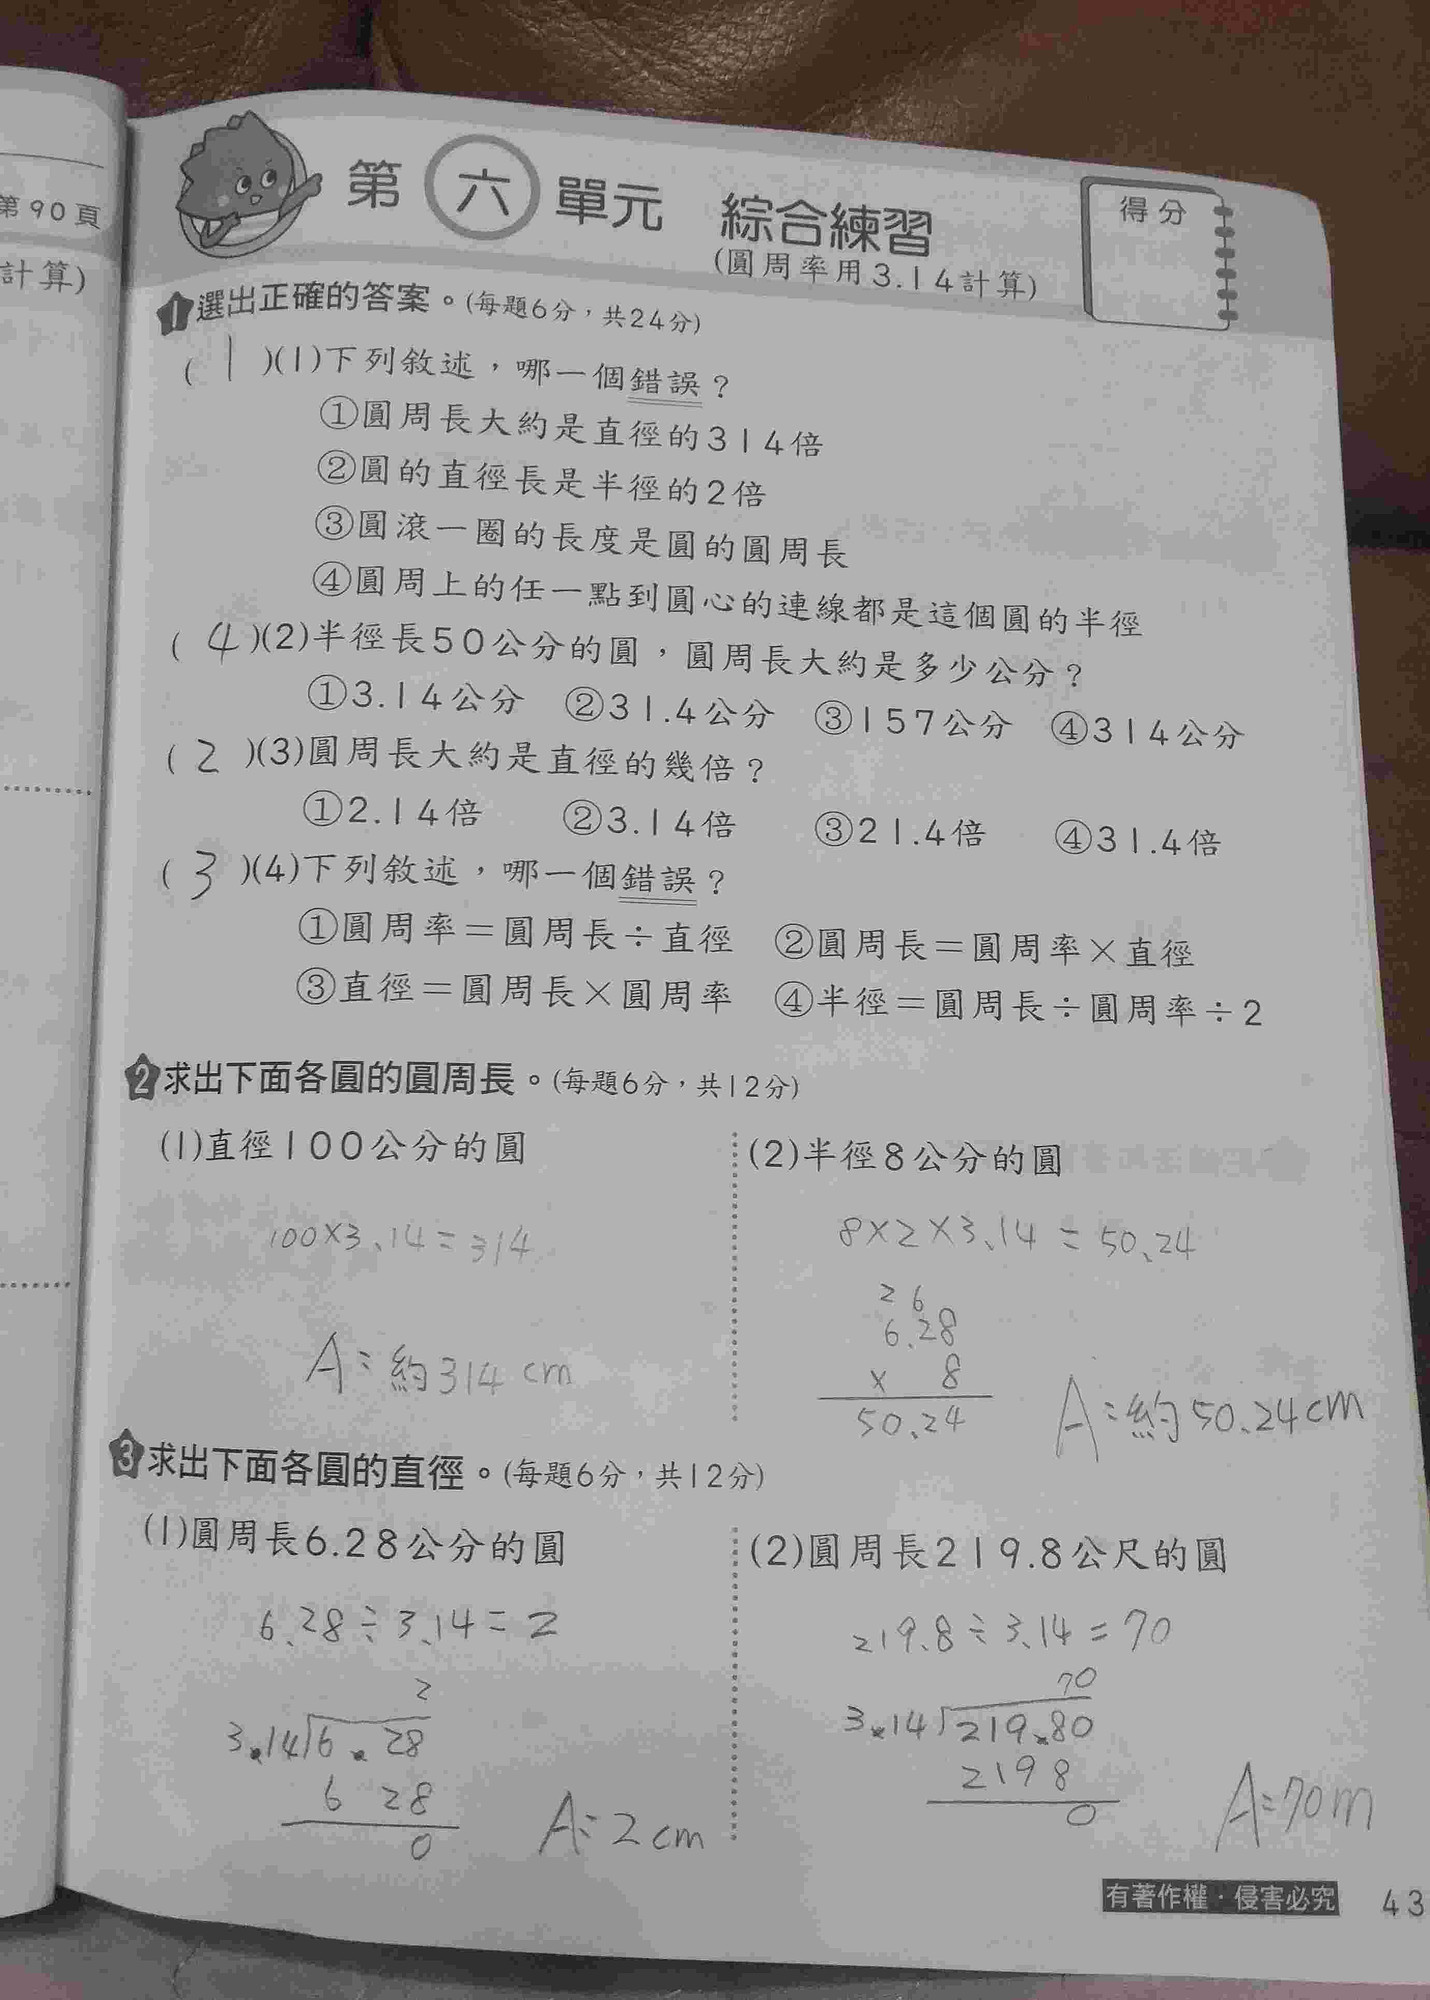 第90頁
計算)
第六單元 綜合練習
(圓周率用3.14計算)
得分
1 選出正確的答案。(每題6分，共24分)
( 1 )(1)下列敘述，哪一個錯誤？
①圓周長大約是直徑的314倍
②圓的直徑長是半徑的2倍
③圓滾一圈的長度是圓的圓周長
④圓周上的任一點到圓心的連線都是這個圓的半徑
( 4 )(2)半徑長50公分的圓，圓周長大約是多少公分？
①3.14公分 ②31.4公分 ③157公分 ④314公分
( 2 )(3)圓周長大約是直徑的幾倍？
①2.14倍 ②3.14倍 ③21.4倍 ④31.4倍
( 3 )(4)下列敘述，哪一個錯誤？
①圓周率＝圓周長÷直徑 ②圓周長＝圓周率×直徑
③直徑＝圓周長×圓周率 ④半徑＝圓周長÷圓周率÷2
2 求出下面各圓的圓周長。(每題6分，共12分)
(1)直徑100公分的圓
100×3.14=314
A:約314cm
(2)半徑8公分的圓
8×2×3.14=50.24
2 6
6.28
× 8
50.24
A:約50.24cm
3 求出下面各圓的直徑。(每題6分，共12分)
(1)圓周長6.28公分的圓
6.28÷3.14=2
2
3.14 6.28
6 28
0
A:2cm
(2)圓周長219.8公尺的圓
219.8÷3.14=70
70
3.14 219.80
2198
0
A:70m
有著作權·侵害必究
43